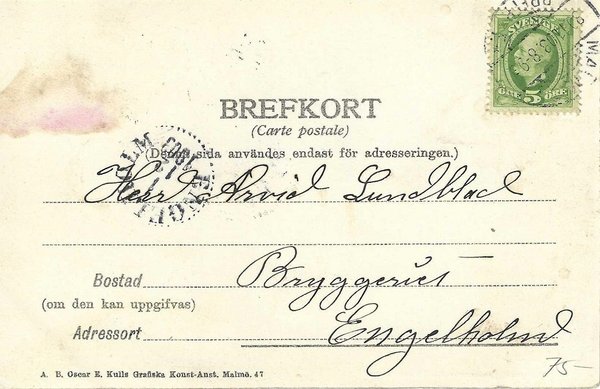 SVERIGE
ÖRE 5 ÖRE
BREFKORT
(Carte postale)
(Denna sida användes endast för adresseringen.)
Herr Arvid Lundblad
Bostad Bryggeriet
(om den kan uppgifvas)
Adressort Engelholm
A. B. Oscar E. Kulls Grafiska Konst-Anst. Malmö. 47
75-